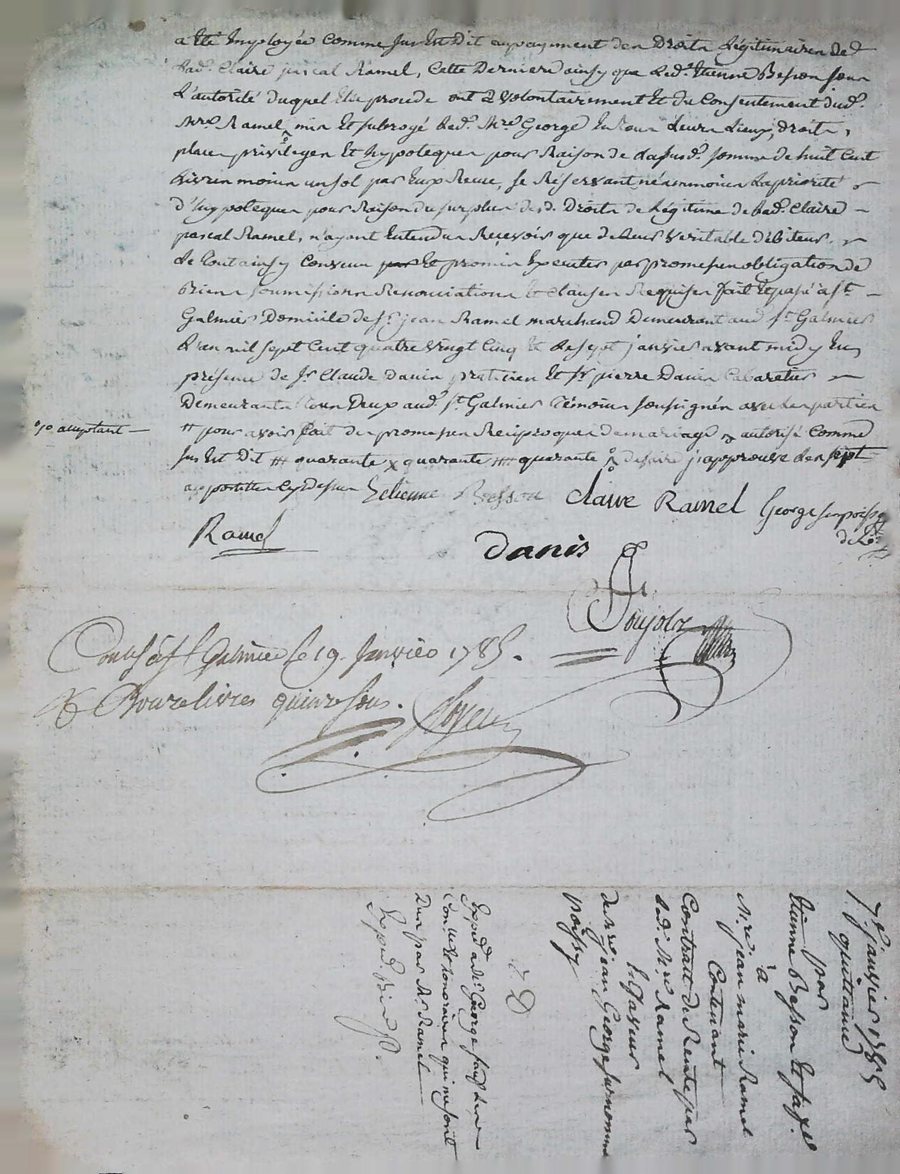 a Eté Employée Comme Sus Est Dit en payement des Droits Légitimaires de lad.
Claire pascal Ramel, Cette Derniere ainsy que led. Etienne Besson sous
L'autorité duquel Elle procede ont volontairement Et du Consentement dud.
Mre. Ramel, mis Et subrogé led. Mre. George En tous Leurs Lieux, droits,
place privileges Et hypoteques pour Raison de la susd. somme de huit Cent
Livres moins un sol par Eux Reçue, se Réservant néanmoins la priorité
d'hypoteques pour Raison du surplus desd. Droits de Légitime de lad. Claire
pascal Ramel, n'ayant Entendu Recevoir que de Leur veritable débiteur.
de tout ainsy Convenu Et promis Executer par promesses obligation de
Biens soumissions Renonciations Et clauses Requises fait Et passé a St.
Galmier Domicile de Sr. jean Ramel marchand Demeurant aud. St. Galmier
L'an mil sept Cent quatre vingt Cinq Et Le sept janvier avant midy En
présence de Sr. Claude Danis praticien Et Sr. pierre Cabaretier
Demeurants tous Deux aud. St. Galmier témoins soussignés avec Les parties
# pour avoir fait des promesses Reciproques de mariage autorisé Comme
%o acceptant
sus Est Dit # quarante x quarante # quarante j'approuve Les sept
apostilles Cy Dessus Etienne Besson Claire Ramel George
Ramel
Danis
Poujolz
Conlé à St. Galmier le 19. Janvier 1785.
R. Douze livres quinze sous.
7e. janvier 1785
quittance
par
Etienne Besson Et sa fe.
à
Mre. jean marie Ramel
Contenant
Contrat de Rente par
led. Mre. Ramel
En faveur
de Mre. jean George surnommé
poissy
Exped. a Mr. George
Con. Et honoraires qui me sont
Dus par Mr. Ramel
Exped.